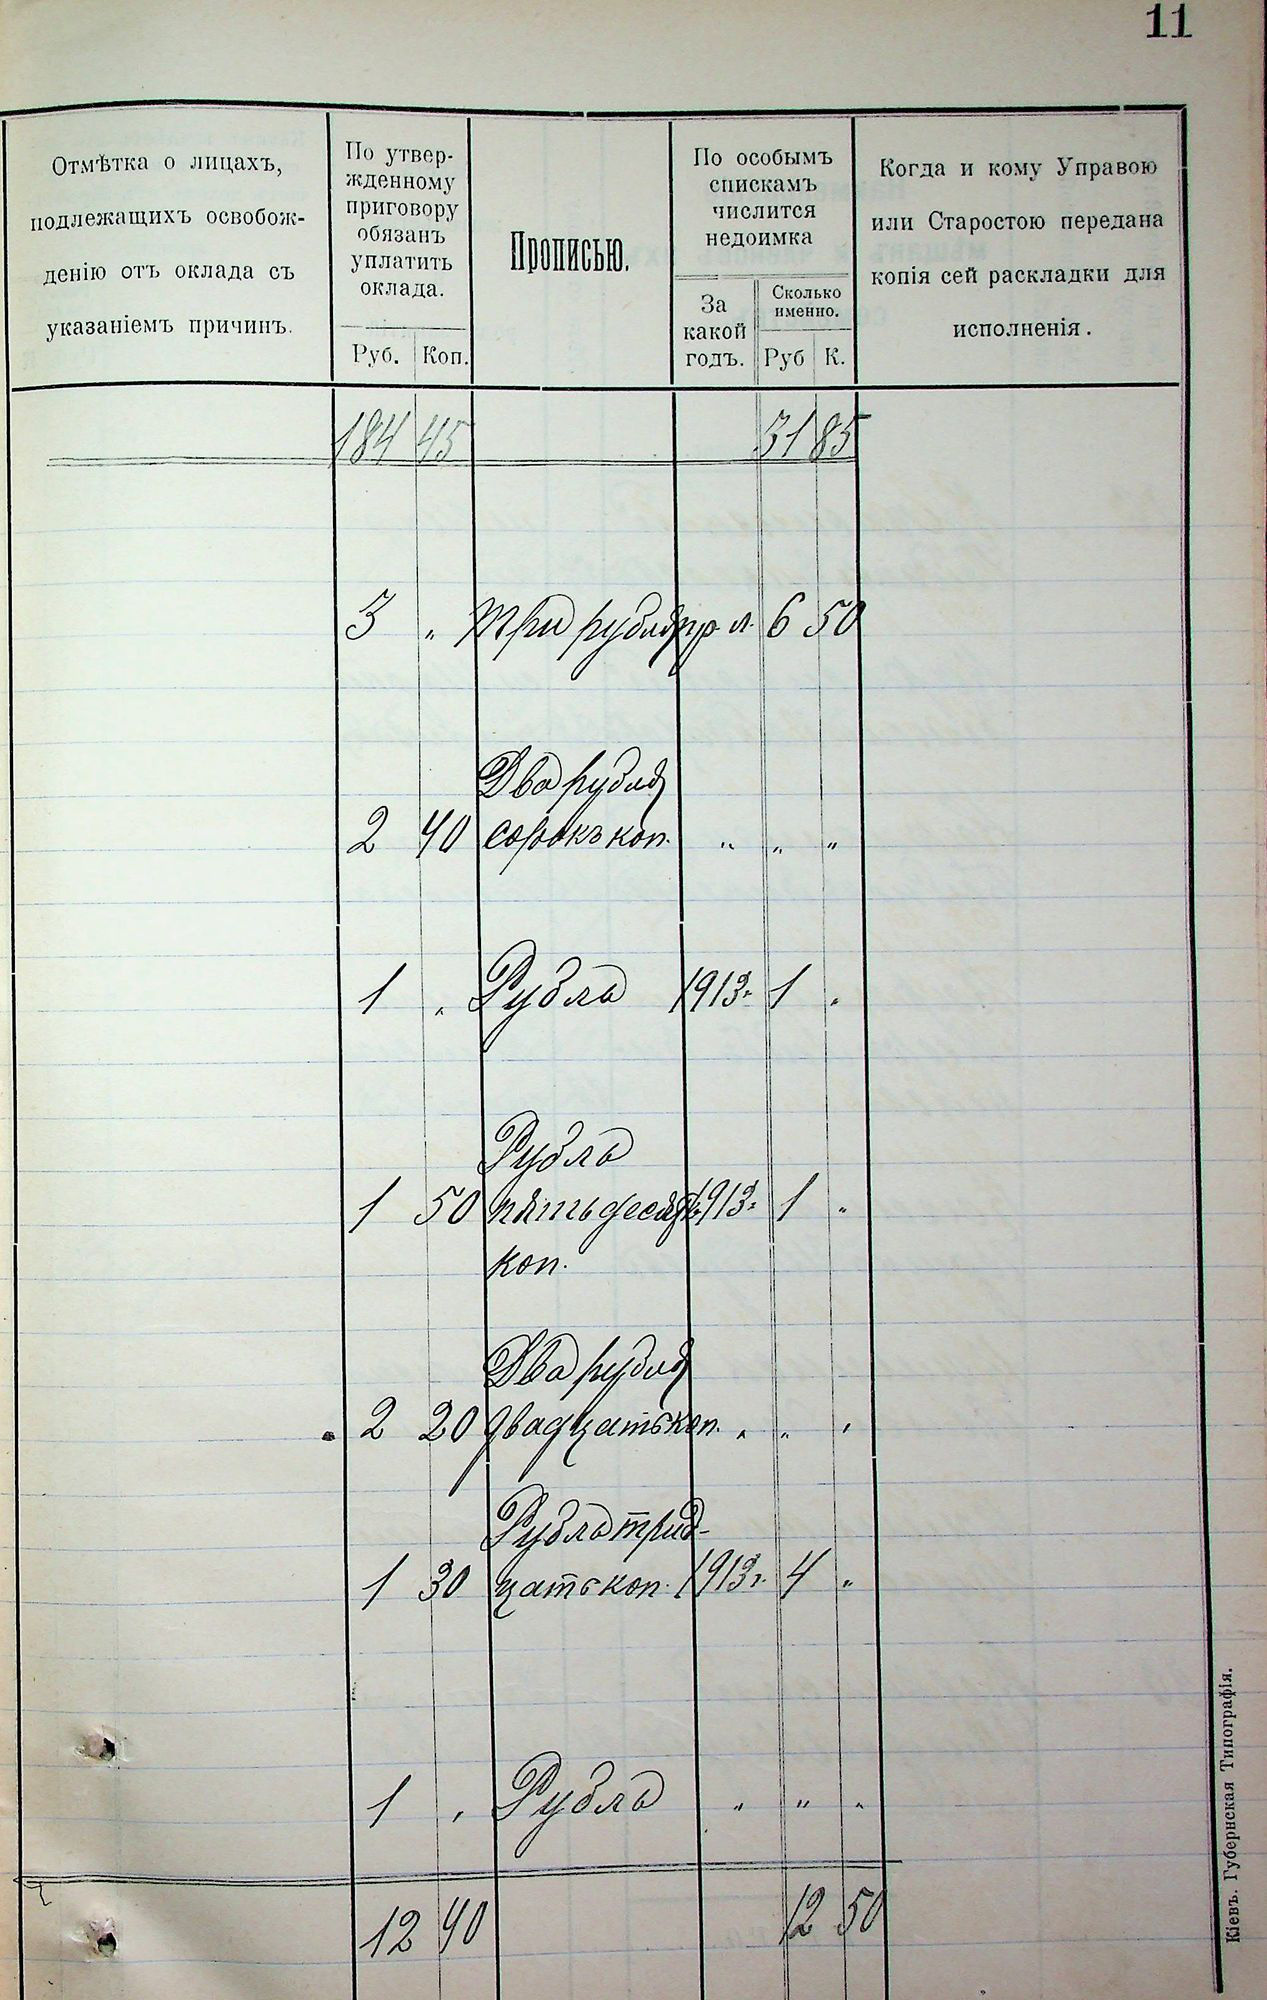 11
Отмѣтка о лицахъ,
подлежащихъ освобож-
денію отъ оклада съ
указаніемъ причинъ.
По утвер-
жденному
приговору
обязанъ
уплатить
оклада.
Руб. Коп.
Прописью.
По особымъ
спискамъ
числится
недоимка
За
какой
годъ.
Сколько
именно.
Руб К.
Когда и кому Управою
или Старостою передана
копія сей раскладки для
исполненія.
184 45 31 85
3 „ Три рубля пр. л. 6 50
Два рубля
2 40 сорокъ коп. „ „ „
1 „ Рубль 1913г. 1 „
Рубль
1 50 пятьдесятъ 1913г. 1 „
коп.
Два рубля
2 20 двадцать коп. „ „ „
Рубль трид-
1 30 цать коп. 1913г. 4 „
1 „ Рубль „ „ „
12 40 12 50
Кіевъ. Губернская Типографія.